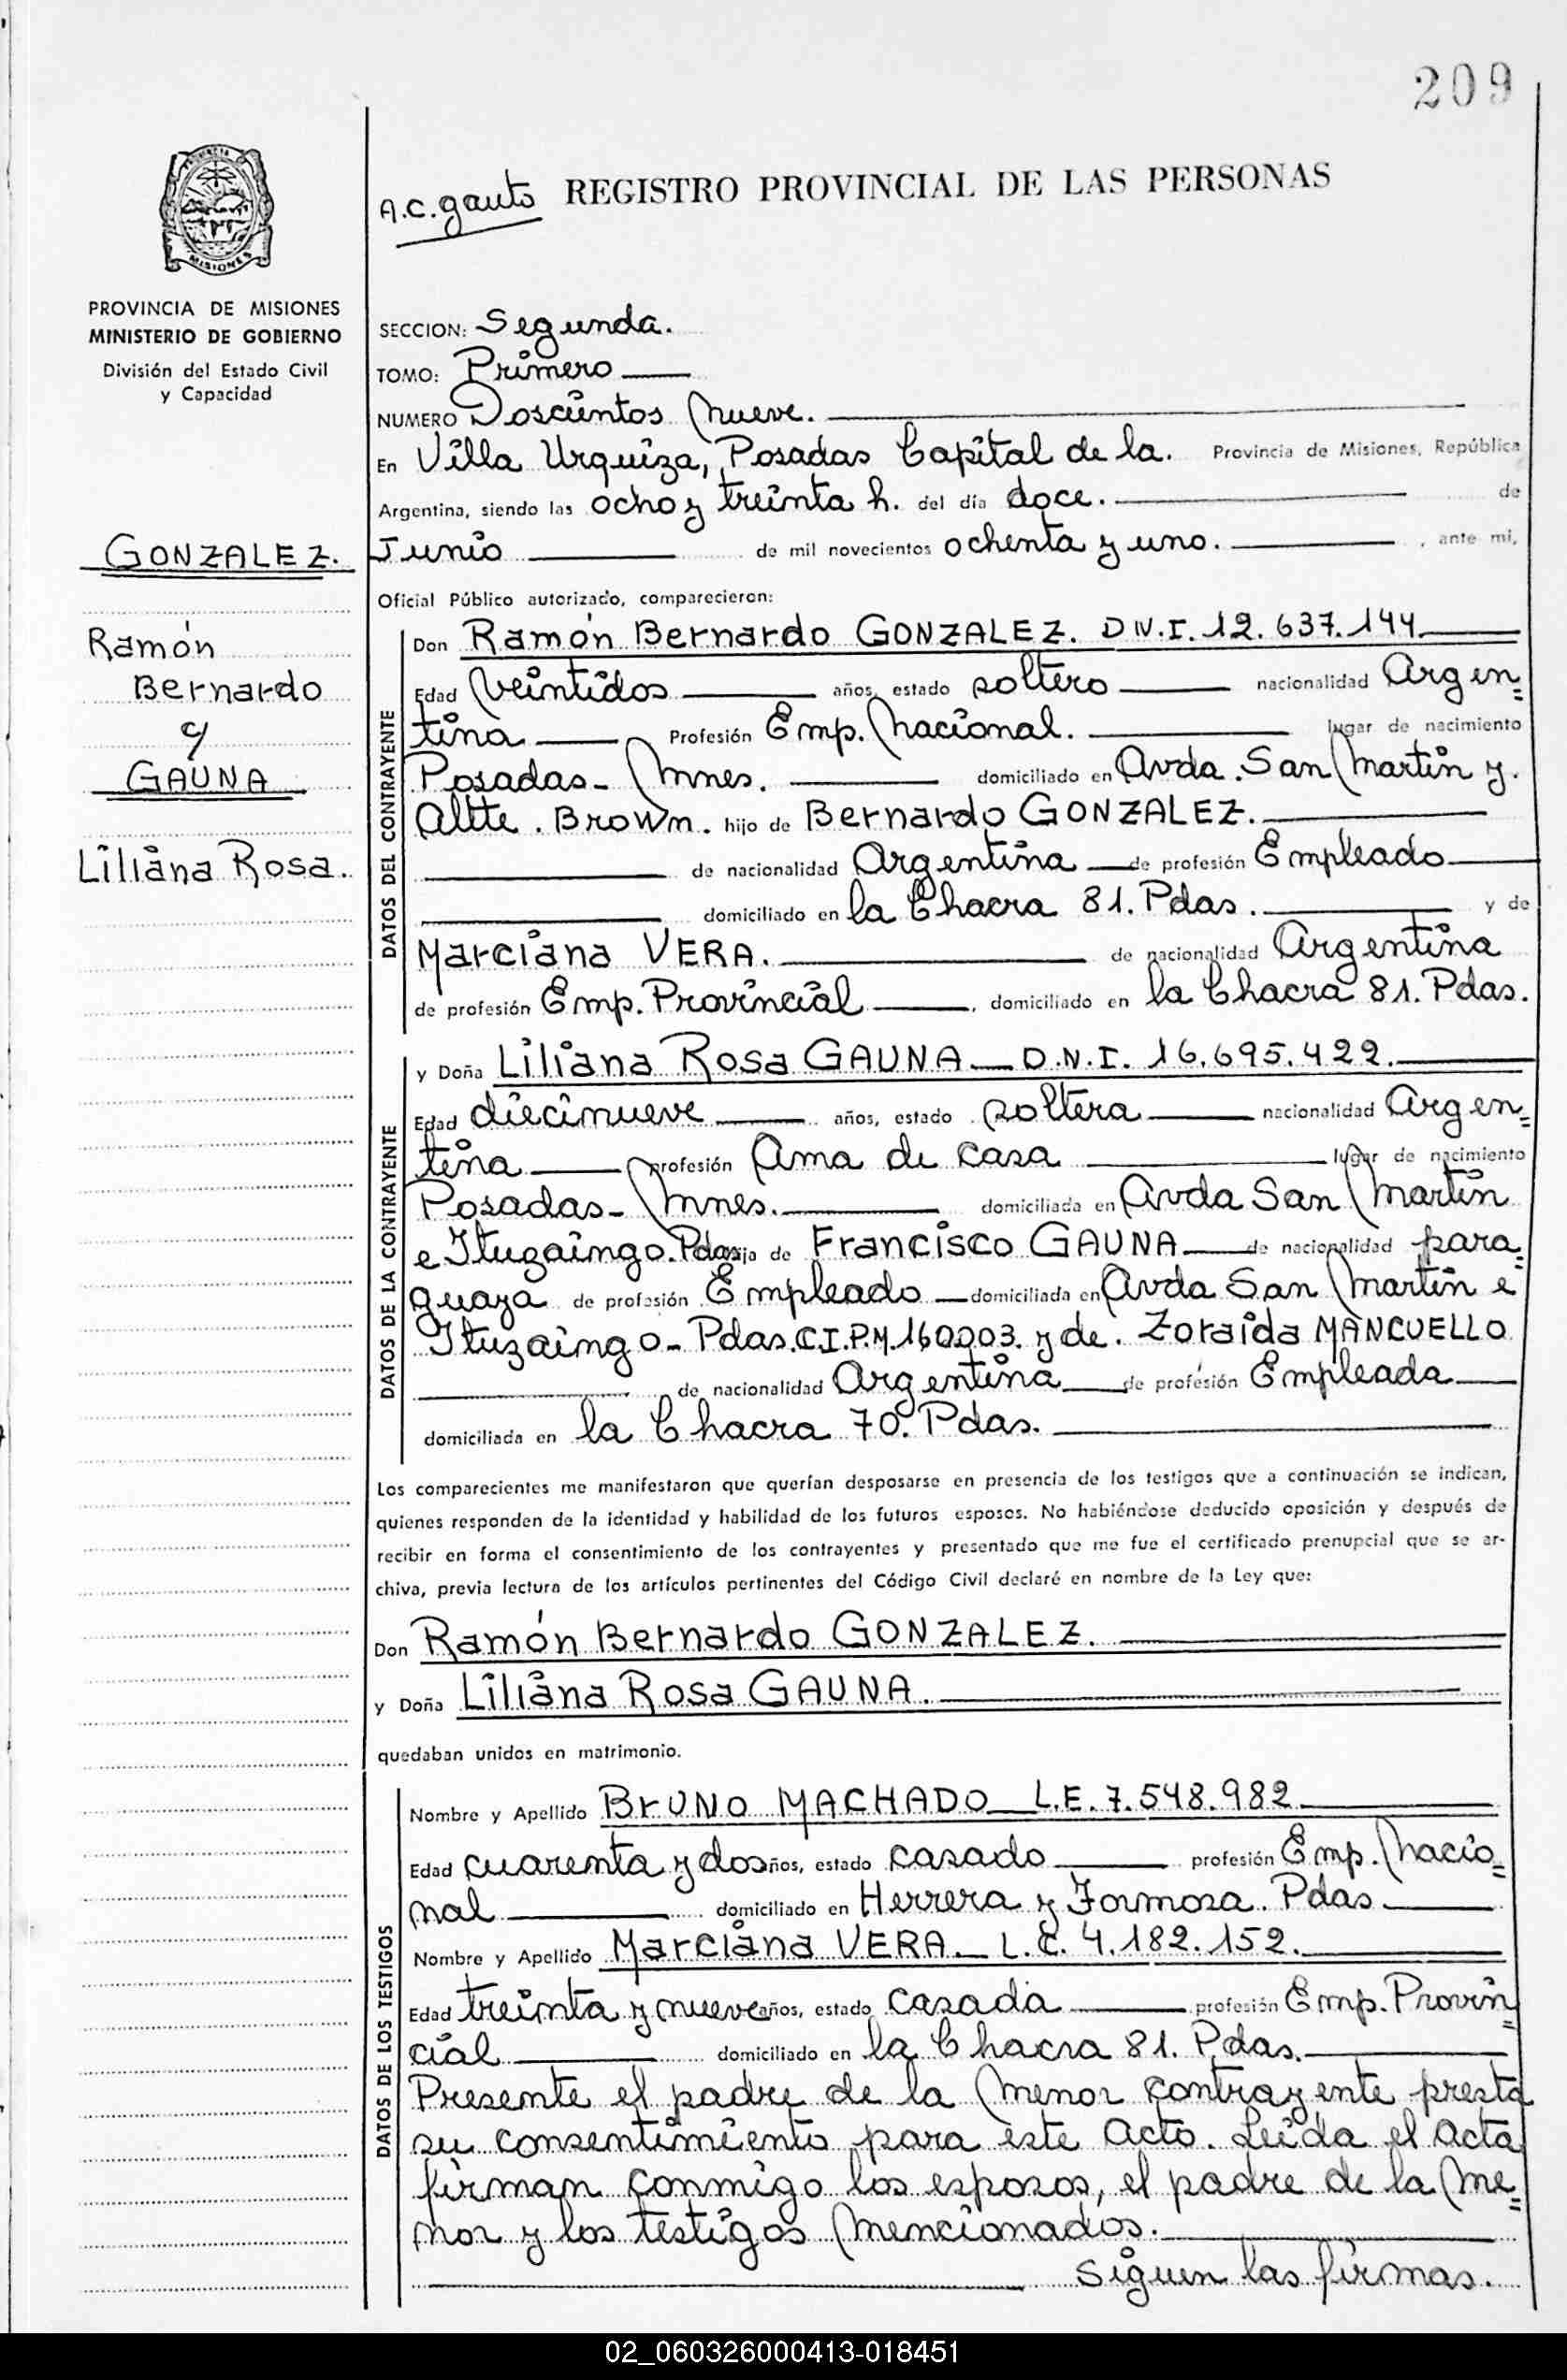 209
PROVINCIA
MISIONES
PROVINCIA DE MISIONES
MINISTERIO DE GOBIERNO
División del Estado Civil
y Capacidad
GONZALEZ.
Ramón
Bernardo
c/
GAUNA
Liliana Rosa.
A.C. gauto REGISTRO PROVINCIAL DE LAS PERSONAS
SECCION: Segunda.
TOMO: Primero
NUMERO Doscientos Nueve.
En Villa Urquiza, Posadas Capital de la. Provincia de Misiones, República
Argentina, siendo las ocho y treinta h. del día doce. de
Junio de mil novecientos ochenta y uno. , ante mi,
Oficial Público autorizado, comparecieron:
DATOS DEL CONTRAYENTE
Don Ramón Bernardo GONZALEZ. D.N.I. 12.637.144
Edad Veintidos años, estado soltero nacionalidad Argen=
tina Profesión Emp. Nacional. lugar de nacimiento
Posadas- Mnes. domiciliado en Avda. San Martin y.
Altte. Brown. hijo de Bernardo GONZALEZ.
de nacionalidad Argentina de profesión Empleado
domiciliado en la Chacra 81. Pdas. y de
Marciana VERA. de nacionalidad Argentina
de profesión Emp. Provincial , domiciliado en la Chacra 81. Pdas.
DATOS DE LA CONTRAYENTE
y Doña Liliana Rosa GAUNA D.N.I. 16.695.422.
Edad diecinueve años, estado soltera nacionalidad Argen=
tina profesión Ama de casa lugar de nacimiento
Posadas- Mnes. domiciliada en Avda San Martin
e Ituzaingo. Pdas hija de Francisco GAUNA de nacionalidad para=
guaya de profesión Empleado domiciliada en Avda San Martin e
Ituzaingo- Pdas. C.I.P.M. 160.003. y de. Zoraida MANCUELLO
de nacionalidad Argentina de profesión Empleada
domiciliada en la Chacra 70. Pdas.
Los comparecientes me manifestaron que querían desposarse en presencia de los testigos que a continuación se indican,
quienes responden de la identidad y habilidad de los futuros esposos. No habiéndose deducido oposición y después de
recibir en forma el consentimiento de los contrayentes y presentado que me fue el certificado prenupcial que se ar-
chiva, previa lectura de los artículos pertinentes del Código Civil declaré en nombre de la Ley que:
Don Ramón Bernardo GONZALEZ.
y Doña Liliana Rosa GAUNA.
quedaban unidos en matrimonio.
DATOS DE LOS TESTIGOS
Nombre y Apellido Bruno MACHADO L.E. 7.548.982
Edad cuarenta y dos años, estado casado profesión Emp. Nacio=
nal domiciliado en Herrera y Formosa. Pdas
Nombre y Apellido Marciana VERA L.C. 4.182.152.
Edad treinta y nueve años, estado casada profesión Emp. Provin=
cial domiciliado en la Chacra 81. Pdas.
Presente el padre de la Menor contrayente presta
su consentimiento para este Acto. Leida el Acta
firman conmigo los esposos, el padre de la Me=
nor y los testigos Mencionados.
Siguen las firmas.
02_060326000413-018451